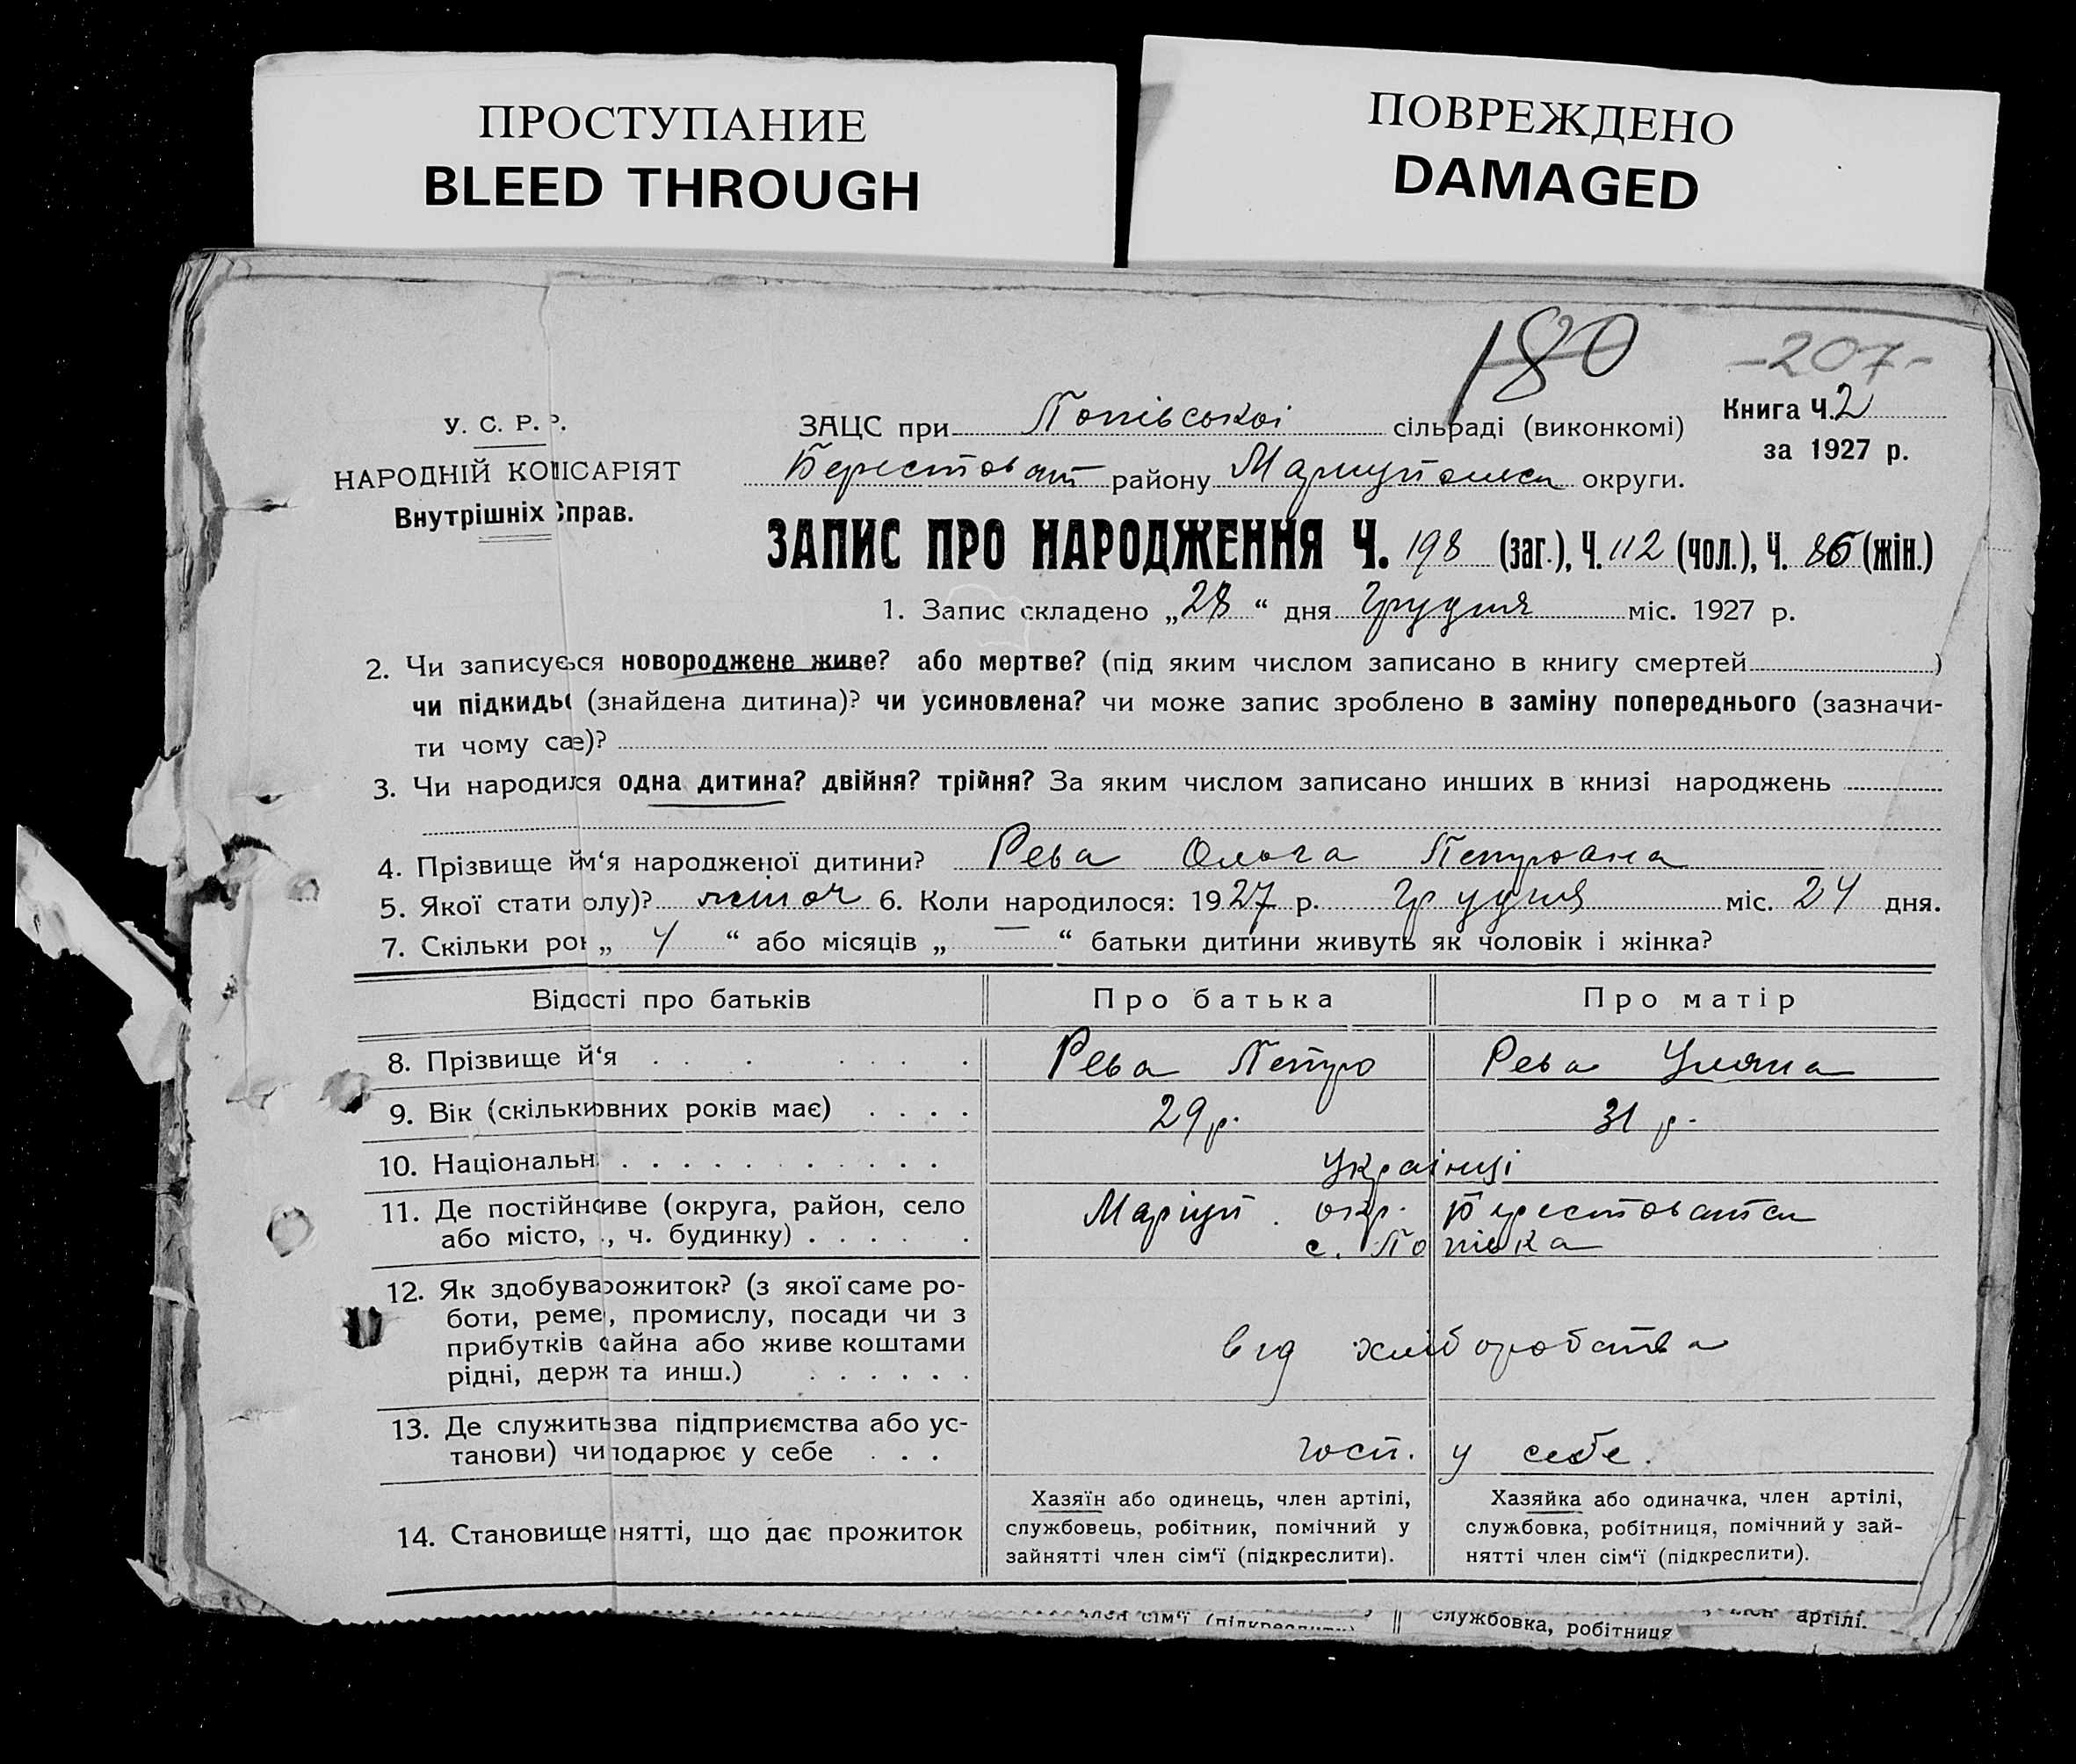 ПРОСТУПАНИЕ
BLEED THROUGH
ПОВРЕЖДЕНО
DAMAGED
180
-207-
У. С. Р. Р.
НАРОДНІЙ КОМІСАРІЯТ
Внутрішніх Справ.
ЗАЦС при Попівської сільраді (виконкомі)
Книга Ч. 2
за 1927 р.
Берестоват району Маріупольськ округи.
ЗАПИС ПРО НАРОДЖЕННЯ Ч. 198 (заг.), Ч. 112 (чол.), Ч. 86 (жін.)
1. Запис складено „28“ дня Грудня міс. 1927 р.
2. Чи записуєься новороджене живе? або мертве? (під яким числом записано в книгу смертей )
чи підкидь (знайдена дитина)? чи усиновлена? чи може запис зроблено в заміну попереднього (зазначи-
ти чому сае)?
3. Чи народилсся одна дитина? двійня? трійня? За яким числом записано инших в книзі народжень
4. Прізвище йм‘я народженої дитини? Рева Ольга Петровна
5. Якої стати олу)? жіноч 6. Коли народилося: 1927 р. Грудня міс. 24 дня.
7. Скільки рок „ 4 “ або місяців „ — “ батьки дитини живуть як чоловік і жінка?
Відості про батьків
Про батька
Про матір
8. Прізвище й‘я
Рева Петро
Рева Уляна
9. Вік (скільки овних років має)
29 р.
31 р.
10. Національн
Українці
11. Де постійно иве (округа, район, село
або місто, , ч. будинку)
Маріуп. окр. Берестоватськ
с. Попівка
12. Як здобува рожиток? (з якої саме ро-
боти, реме , промислу, посади чи з
прибутків айна або живе коштами
рідні, держ та инш.)
від хліборобства
13. Де служить зва підприємства або ус-
танови) чи подарює у себе
госп. у себе.
14. Становище нятті, що дає прожиток
Хазяїн або одинець, член артілі,
службовець, робітник, помічний у
зайнятті член сім‘ї (підкреслити).
Хазяйка або одиначка, член артілі,
службовка, робітниця, помічний у зай-
нятті член сім‘ї (підкреслити).
член сім‘ї (підкреслити)
службовка, робітниця
артілі.